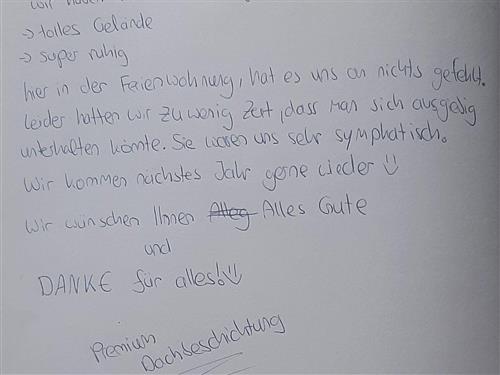 → tolles Gelände
→ super ruhig
hier in der Ferienwohnung, hat es uns an nichts gefehlt.
Leider hatten wir zu wenig Zeit, dass man sich ausgebig
unterhalten könnte. Sie waren uns sehr symphatisch.
Wir kommen nächstes Jahr gerne wieder
Wir wünschen Ihnen Alles Gute
und
DANKE für alles!
Premium
Dachbeschichtung